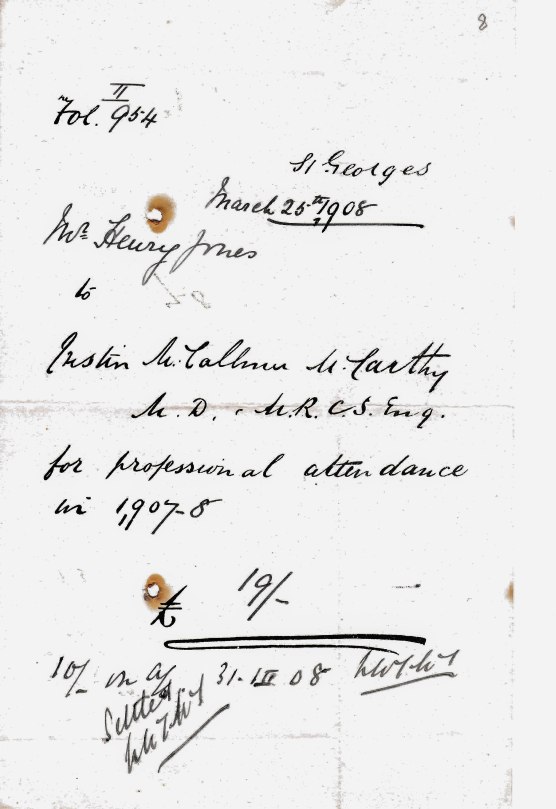 8
II
Fol. 954
St Georges
March 25th 1908
Mr Henry Jones
to
Justin McCalhoun McCarthy
M.D., M.R.C.S. Eng.
for professional attendance
in 1907-8
£ 19/-
10/- on a/c 31-III 08
Settled